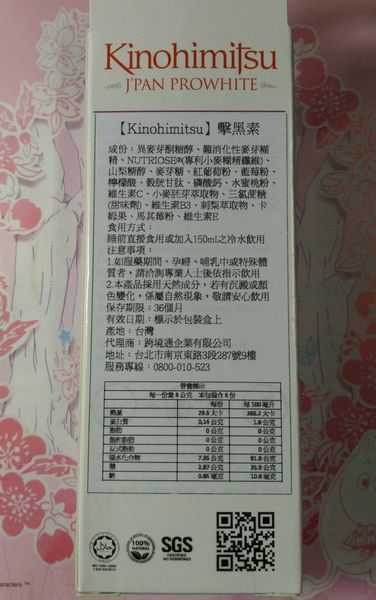 Kinohimitsu
J'PAN PROWHITE
【Kinohimitsu】擊黑素
成份：異麥芽酮糖醇、難消化性麥芽糊
精、NUTRIOSE®(專利小麥糊精纖維)、
山梨糖醇、麥芽糖、紅葡萄粉、藍莓粉、
檸檬酸、穀胱甘肽、磷酸鈣、水蜜桃粉、
維生素C、小麥胚芽萃取物、三氯蔗糖
(甜味劑)、維生素B3、刺梨萃取物、卡
姆果、馬其莓粉、維生素E
食用方式：
睡前直接食用或加入150ml之冷水飲用
注意事項：
1.如服藥期間、孕婦、哺乳中或特殊體
質者，請洽詢專業人士後依指示飲用
2.本產品採用天然成分，若有沉澱或顏
色變化，係屬自然現象，敬請安心飲用
保存期限：36個月
有效日期：標示於包裝盒上
產地：台灣
代理商：跨境通企業有限公司
地址：台北市南京東路3段287號9樓
服務專線：0800-010-523
營養標示
每一份量 8 公克 本包裝含 6 份
每份
熱量 29.5 大卡
蛋白質 0.14 公克
脂肪 0 公克 0 公克
飽和脂肪 0 公克 0 公克
反式脂肪 0 公克 0 公克
碳水化合物
糖
鈉
100% NATURAL
SGS
NO SIDE EFFECTS